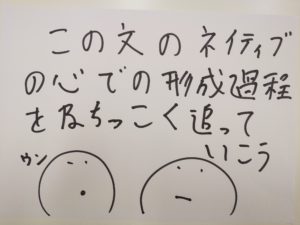 この文のネイティブ
の心での形成過程
を及ちっこく追って
いこう
ウン